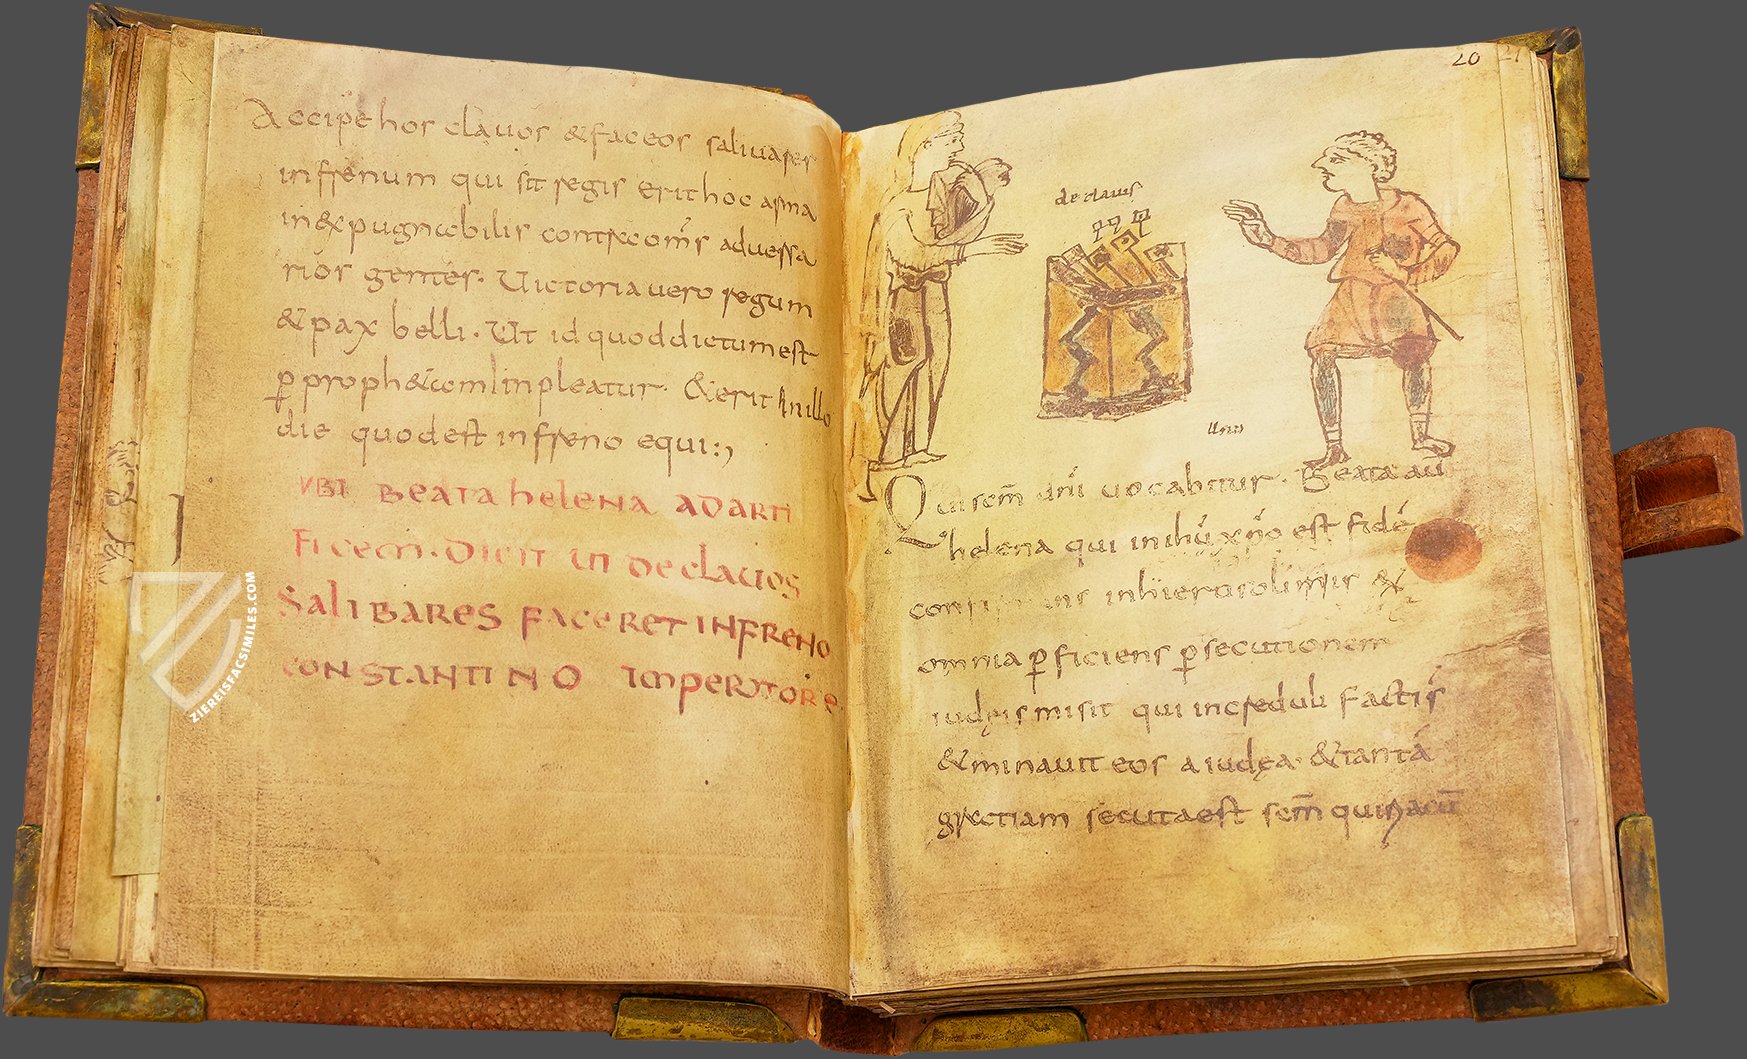 Accipe hos clauos & fac eos saliuares
in frenum qui sit regis erit hoc arma
in&pugnabilis contra om̄s aduersa
rios gentes. Uictoria uero regum
& pax belli. Ut id quod dictum est
ꝑ proph&am Impleatur. & erit In illo
die quod est in freno equi:,
VBI BEATA helena ADARTI
FICEM. DICIT UT DE clAUOS
SAliBARES FACERET INFRENO
CONSTANTINO IMPERATORE.
20 21
de clauis
Qui sem̄ dnī uocabitur. Beata au̅
helena qui in ihū xp̄o est fidē
in hierosolimis &
omnia ꝑficiens ꝑsecutionem
iudęis misit qui increduli factis
& minauit eos a iudęa. & tantā
gratiam secuta est sem̄
ZIEREISFACSIMILES.COM